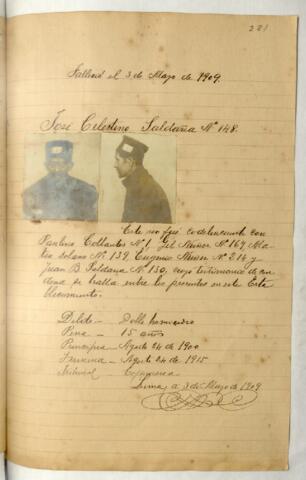 221
Falleció el 3 de Mayo de 1909.
José Celestino Saldaña Nº 148.
Este reo fué codelincuente con
Paulino Collantes Nº 1, Gil Nº 169, Ma-
Solano Nº 139, Eugenio Nº 214 y
Juan B. Saldaña Nº 150, cuyo testimonio de con-
dena se halla entre los presentes en este Esta
blecimiento.
Delito — Doble homicidio
Pena — 15 años
Principia — Agosto 24 de 1900
Termina — Agosto 24 de 1915
Tribunal — Cajamarca
Lima, a 3 de Mayo de 1909.